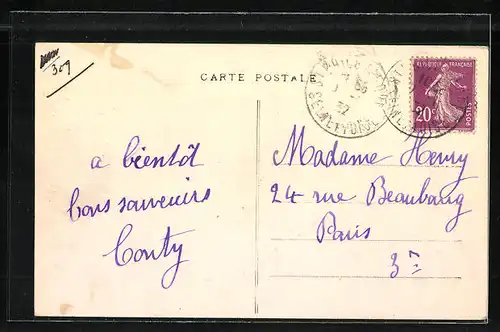 309
CARTE POSTALE
REPUBLIQUE FRANÇAISE
20c
POSTES
a bientôt
bons souvenirs
Conty
Madame Henry
24 rue Beaubourg
Paris
3e